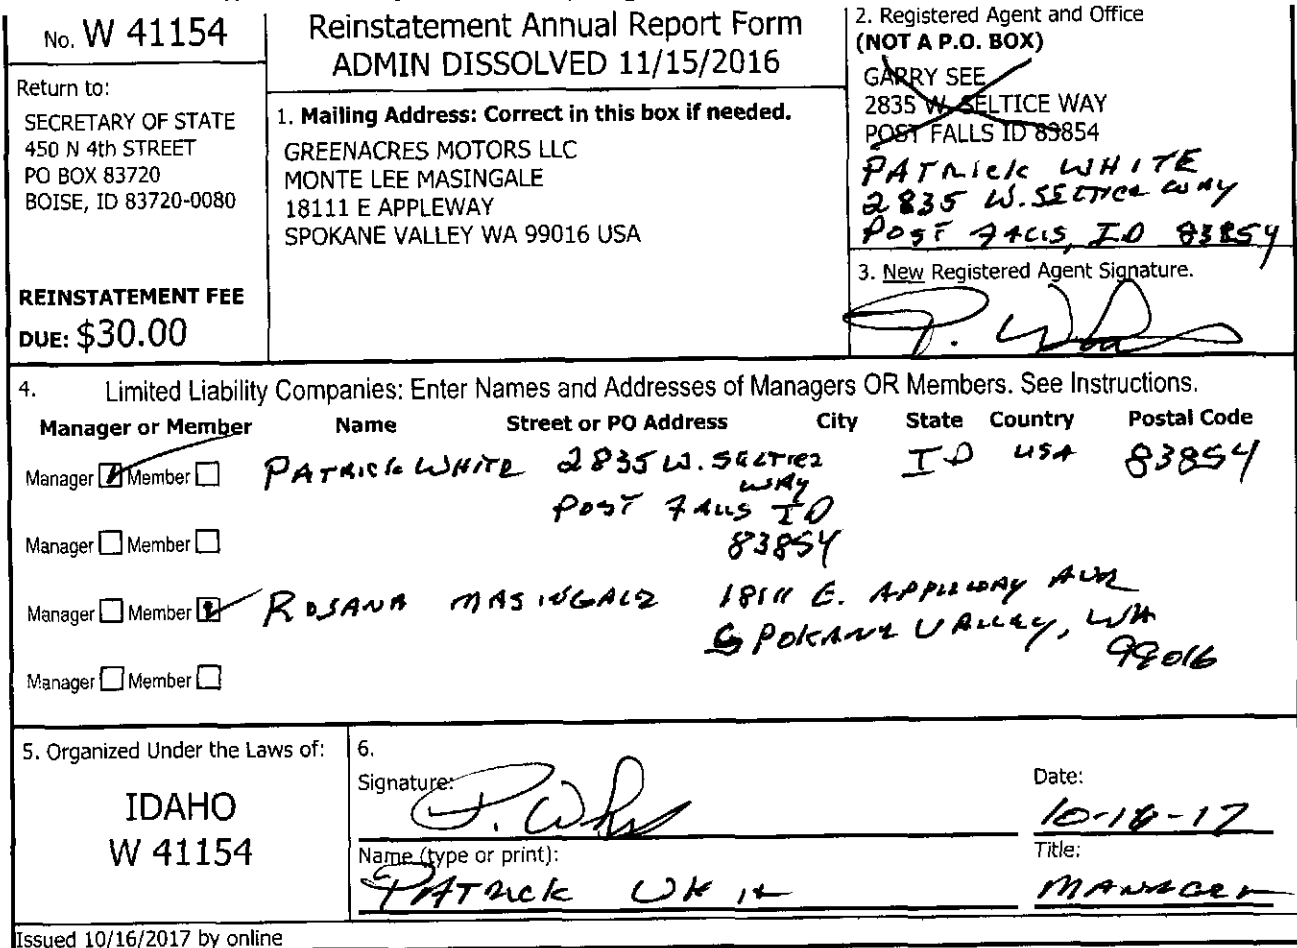 No. W 41154
Return to:
SECRETARY OF STATE
450 N 4th STREET
PO BOX 83720
BOISE, ID 83720-0080
REINSTATEMENT FEE
DUE: $30.00
Reinstatement Annual Report Form
ADMIN DISSOLVED 11/15/2016
1. Mailing Address: Correct in this box if needed.
GREENACRES MOTORS LLC
MONTE LEE MASINGALE
18111 E APPLEWAY
SPOKANE VALLEY WA 99016 USA
2. Registered Agent and Office
(NOT A P.O. BOX)
GARRY SEE
2835 W. SELTICE WAY
POST FALLS ID 83854
PATRICK WHITE
2835 W. SELTICE WAY
POST FALLS, ID 83854
3. New Registered Agent Signature.
P. Wh
4. Limited Liability Companies: Enter Names and Addresses of Managers OR Members. See Instructions.
Manager or Member Name Street or PO Address City State Country Postal Code
Manager Member PATRICK WHITE 2835 W. SELTICE ID USA 83854
WAY
POST FALLS ID
Manager Member 83854
Manager Member ROSANA MASINGALE 18111 E. APPLEWAY AVE
SPOKANE VALLEY, WA
99016
Manager Member
5. Organized Under the Laws of:
IDAHO
W 41154
6.
Signature: P. Wh
Date:
10-16-17
Name (type or print):
PATRICK White
Title:
MANAGER
Issued 10/16/2017 by online